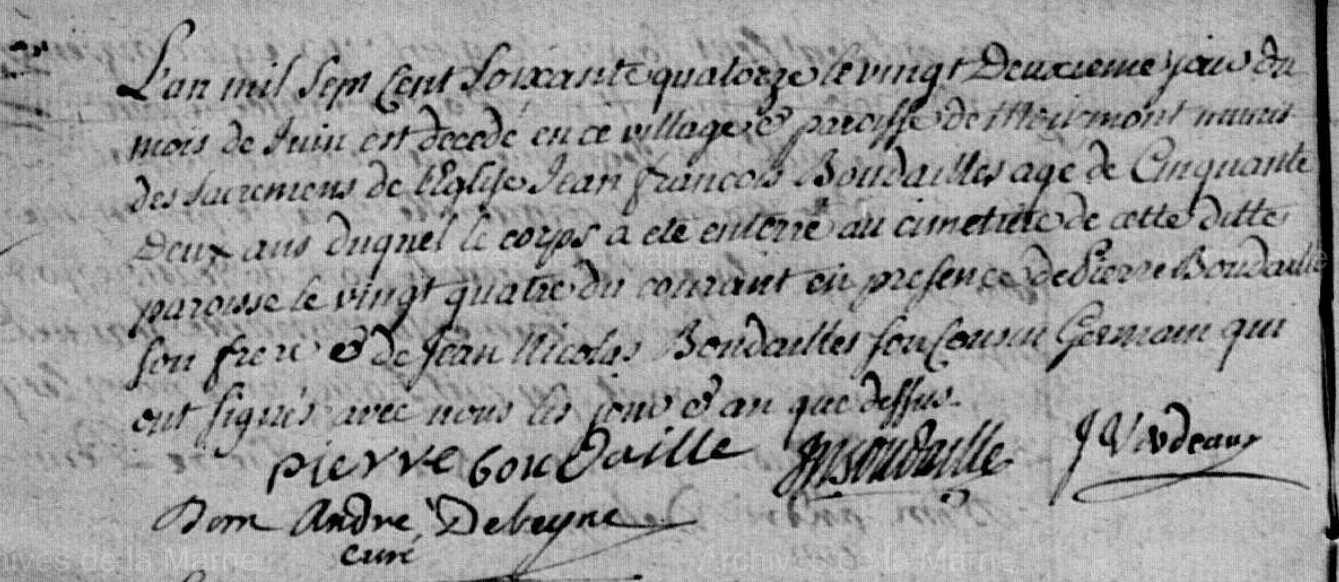 L'an mil sept Cent Soixante quatorze le vingt Deuxieme jour du
mois de Juin est decedé en ce village & paroisse de Moiremont munis
des sacremens de l'Eglise Jean françois Boudailles agé de Cinquante
Deux ans duquel le corps a eté enterré au cimetiere de cette ditte
paroisse le vingt quatre du courant en presence de Pierre Boudaille
son frere & de Jean Nicolas Boudailles son Cousin Germain qui
ont signés avec nous les jour & an que dessus.
pierre bouDaille JNBoudaille
Dom André Debeyne
curé
Archives de la Marne
Archives de la Marne